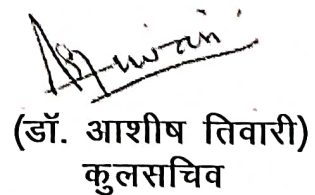 (डॉ. आशीष तिवारी)
कुलसचिव